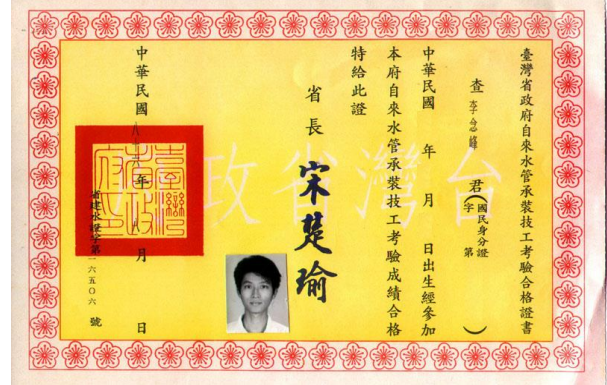 臺灣省政府自來水管承裝技工考驗合格證書
查 李 峰 君(國民身分證 字第 )
中華民國 年 月 日出生經參加
本府自來水管承裝技工考驗成績合格
特給此證
省長 宋楚瑜
中華民國 八十六年 八月 日
省建水證字第一六五〇六號
台灣省政
臺灣省政府印